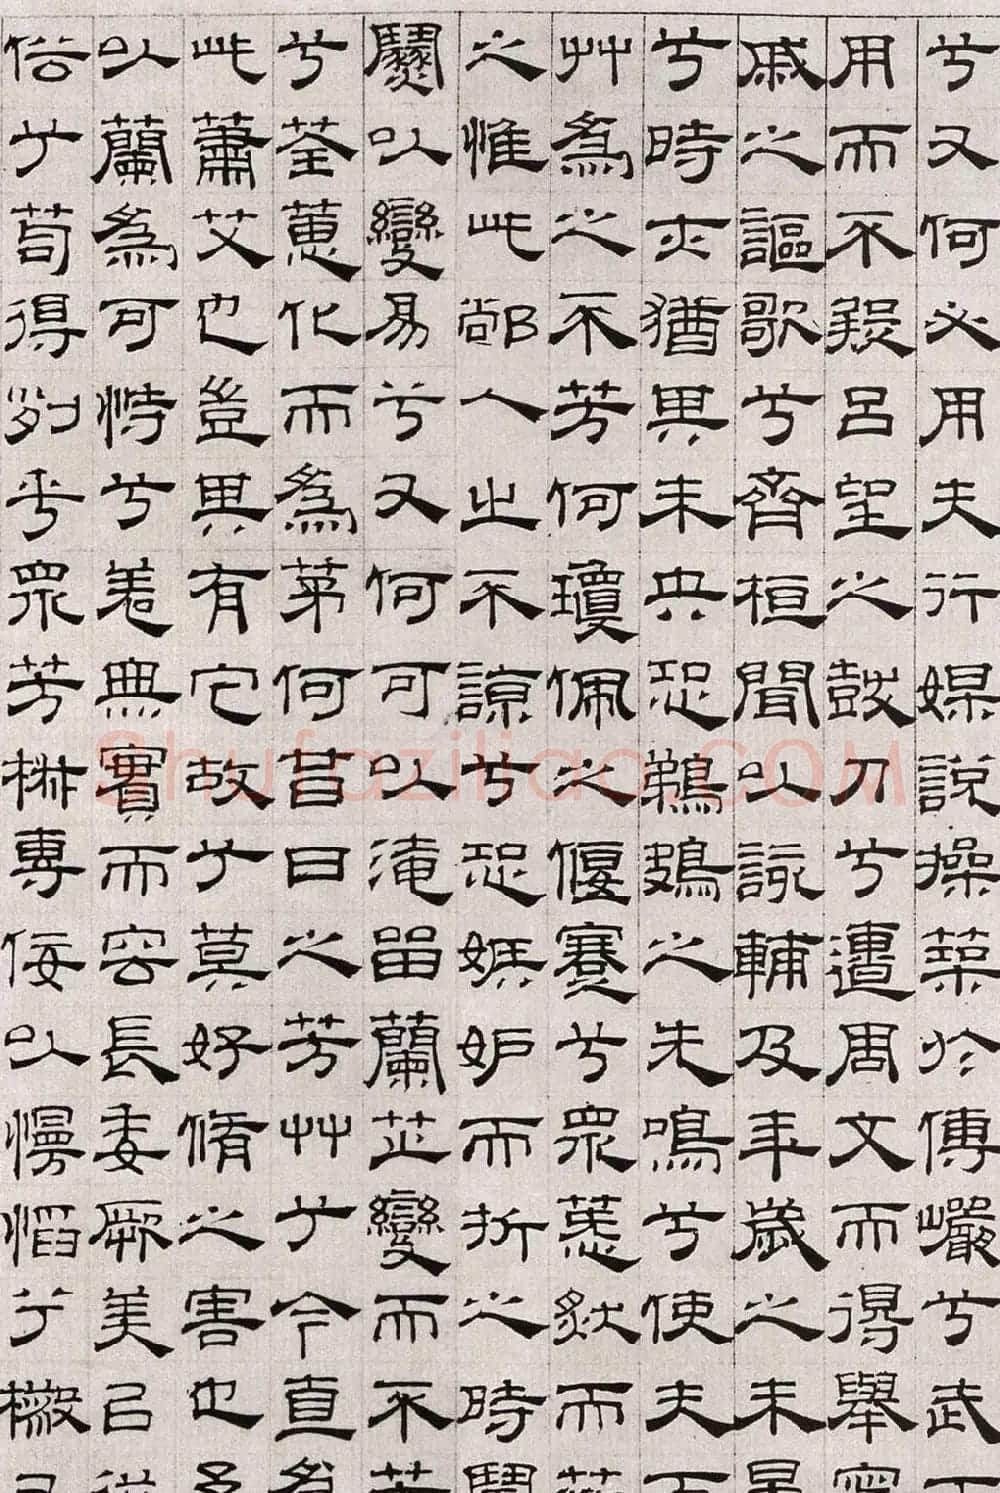 兮又何必用夫行媒說操築於傅巖兮武丁
用而不疑呂望之鼓刀兮遭周文而得舉甯
戚之謳歌兮齊桓聞以該輔及年歲之未晏
兮時亦猶其未央恐鵜鴂之先鳴兮使夫百
艸為之不芳何瓊佩之偃蹇兮衆薆然而蔽
之惟此䣊人之不諒兮恐嫉妒而折之時
以變易兮又何可以淹留蘭芷變而不芳
兮荃蕙化而為茅何昔日之芳艸兮今直為
此蕭艾也豈其有它故兮莫好脩之害也予
以蘭為可恃兮羌無實而容長委厥美㠯從
俗兮苟得列乎衆芳椒專佞以慢慆兮樧
Shufaziliao.COM